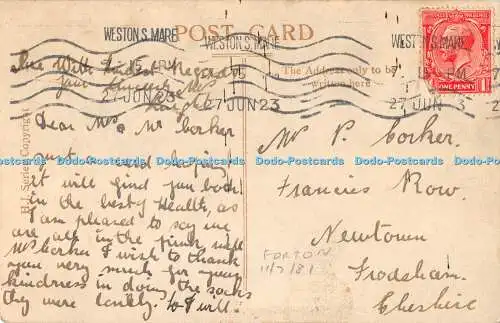 POST CARD
WESTON S. MARE
WESTON S. MARE
WESTON S. MARE
27 JUN 23
27 JUN 23
27 JUN
ONE PENNY
The Address only to be
written here
H.J. Series Copyright
With Kindest Regards
Dear Mrs & Mr Corker
Just a card hoping
it will find you both
in the best of Health, as
I am pleased to say we
are all in the pink well
Mrs Corker I wish to thank
you very much for your
kindness in doing the socks
they were lovely. So I will
Mr P. Corker.
Francis Row.
Newtown
Frodsham.
Cheshire
FORTON
11/7/81
Dodo-Postcards Dodo-Postcards Dodo-Postcards Dodo-Postcards Dodo-Postcards